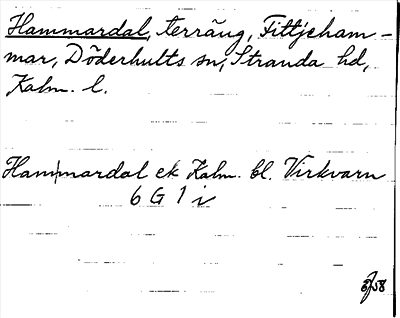 Hammardal, terräng, Fittjeham-
mar, Döderhults sn, Stranda hd,
Kalm. l.
Hammardal ek Kalm. bl. Virkvarn
6 G 1 i